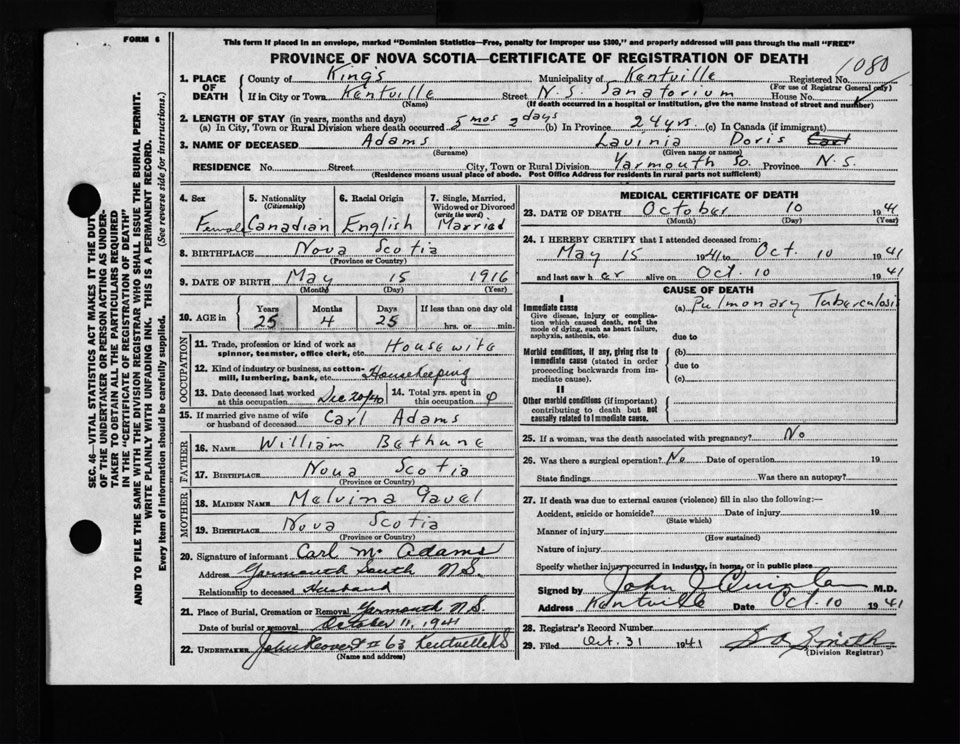 FORM 6
This form if placed in an envelope, marked "Dominion Statistics—Free, penalty for improper use $300," and properly addressed will pass through the mail "FREE"
PROVINCE OF NOVA SCOTIA—CERTIFICATE OF REGISTRATION OF DEATH
1080
1. PLACE OF DEATH
County of King's Municipality of Kentville Registered No.
(For use of Registrar General only)
If in City or Town Kentville Street N.S. Sanatorium House No.
(Name) (If death occurred in a hospital or institution, give the name instead of street and number)
2. LENGTH OF STAY (in years, months and days)
(a) In City, Town or Rural Division where death occurred 5 mos 2 days (b) In Province 24 yrs. (c) In Canada (if immigrant)
3. NAME OF DECEASED Adams Lavinia Doris Carl
(Surname) (Given name or names)
RESIDENCE No. Street City, Town or Rural Division Yarmouth So. Province N.S.
(Residence means usual place of abode. Post Office Address for residents in rural parts not sufficient)
4. Sex 5. Nationality (Citizenship) 6. Racial Origin 7. Single, Married, Widowed or Divorced (write the word)
Female Canadian English Married
8. BIRTHPLACE Nova Scotia
(Province or Country)
9. DATE OF BIRTH May 15 1916
(Month) (Day) (Year)
10. AGE in Years Months Days If less than one day old
25 4 25 hrs. or min.
OCCUPATION
11. Trade, profession or kind of work as spinner, teamster, office clerk, etc. Housewife
12. Kind of industry or business, as cotton-mill, lumbering, bank, etc. Housekeeping
13. Date deceased last worked at this occupation Dec 20/40 14. Total yrs. spent in this occupation
15. If married give name of wife or husband of deceased Carl Adams
FATHER
16. NAME William Bethune
17. BIRTHPLACE Nova Scotia
(Province or Country)
MOTHER
18. MAIDEN NAME Melvina Gavel
19. BIRTHPLACE Nova Scotia
(Province or Country)
20. Signature of informant Carl M. Adams
Address Yarmouth South N.S.
Relationship to deceased Husband
21. Place of Burial, Cremation or Removal Yarmouth N.S.
Date of burial or removal October 11, 1941
22. UNDERTAKER John 63 Kentville N.S
(Name and address)
MEDICAL CERTIFICATE OF DEATH
23. DATE OF DEATH October 10 1941
(Month) (Day) (Year)
24. I HEREBY CERTIFY that I attended deceased from:
May 15 1941 to Oct. 10 1941
and last saw her alive on Oct. 10 1941
CAUSE OF DEATH
I
Immediate cause (a) Pulmonary Tuberculosis
Give disease, injury or complication which caused death, not the mode of dying, such as heart failure, asphyxia, asthenia, etc.
due to
Morbid conditions, if any, giving rise to immediate cause (stated in order proceeding backwards from immediate cause).
(b)
due to
(c)
II
Other morbid conditions (if important) contributing to death but not causally related to immediate cause.
25. If a woman, was the death associated with pregnancy? No
26. Was there a surgical operation? No Date of operation 19
State findings Was there an autopsy?
27. If death was due to external causes (violence) fill in also the following:—
Accident, suicide or homicide? Date of injury 19
(State which)
Manner of injury
(How sustained)
Nature of injury
Specify whether injury occurred in industry, in home, or in public place
Signed by John J Quinlan M.D.
Address Kentville Date Oct. 10 1941
28. Registrar's Record Number
29. Filed Oct. 31 1941 Smith
(Division Registrar)
SEC. 46—VITAL STATISTICS ACT MAKES IT THE DUTY
OF THE UNDERTAKER OR PERSON ACTING AS UNDERTAKER TO OBTAIN ALL THE PARTICULARS REQUIRED
IN THE "CERTIFICATE OF REGISTRATION OF DEATH"
AND TO FILE THE SAME WITH THE DIVISION REGISTRAR WHO SHALL ISSUE THE BURIAL PERMIT.
WRITE PLAINLY WITH UNFADING INK. THIS IS A PERMANENT RECORD.
Every item of information should be carefully supplied. (See reverse side for instructions.)